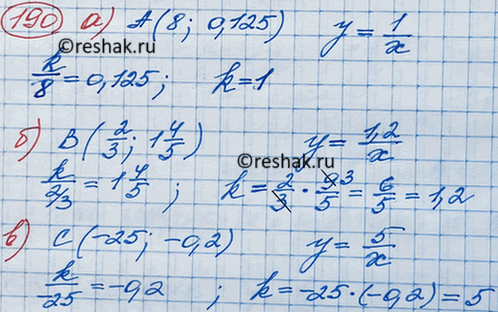 190 а) A(8; 0,125) y = 1/x
©reshak.ru
k/8 = 0,125; k = 1
б) B(2/3; 1 4/5) y = 1,2/x
©reshak.ru
k/(2/3) = 1 4/5; k = 2/3 · 9/5 3 = 6/5 = 1,2
в) C(-25; -0,2) y = 5/x
k/-25 = -0,2; k = -25·(-0,2) = 5